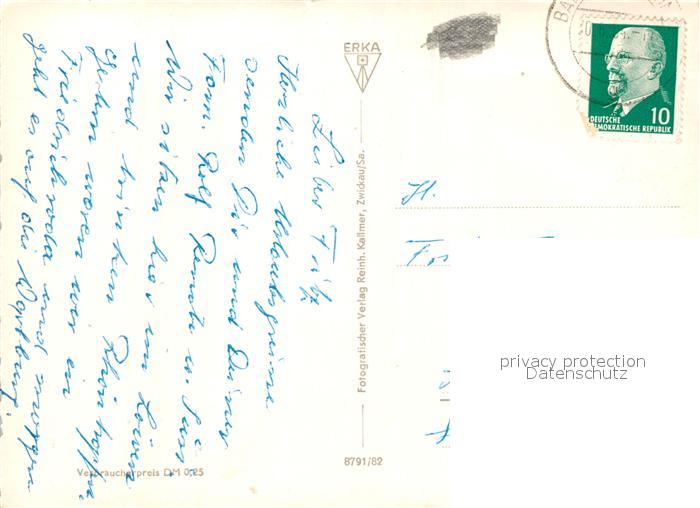 Lieber Fritz
Herzliche Urlaubsgrüsse
senden Dir und Deiner
Fam. Rolf
Wir sitzen hier im Löwen
und trinken Rhöntropfen
Gestern waren wir in
Friedrichroda und morgen
geht es auf die Wartburg.
Verbraucherpreis DM 0,25
ERKA
Fotografischer Verlag Reinh. Kallmer, Zwickau/Sa.
8791/82
10
DEUTSCHE
DEMOKRATISCHE REPUBLIK
BA
H.
privacy protection
Datenschutz